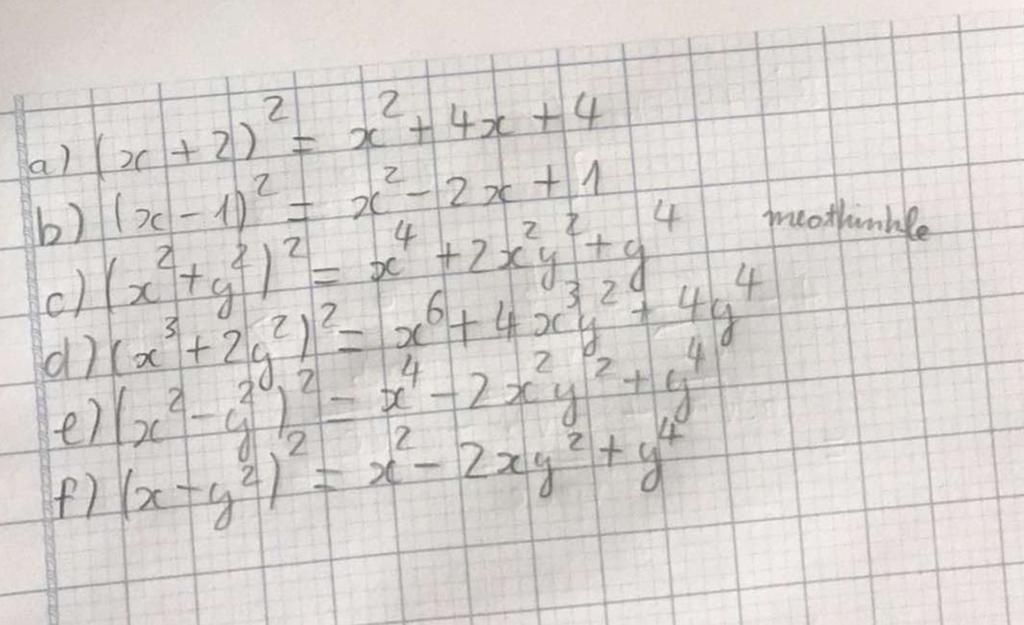 a) (x + 2)² = x² + 4x + 4
b) (x - 1)² = x² - 2x + 1
c) (x² + y²)² = x⁴ + 2x²y² + y⁴ meothinhle
d) (x³ + 2y²)² = x⁶ + 4x³y² + 4y⁴
e) (x² - y²)² = x⁴ - 2x²y² + y⁴
f) (x - y²)² = x² - 2xy² + y⁴